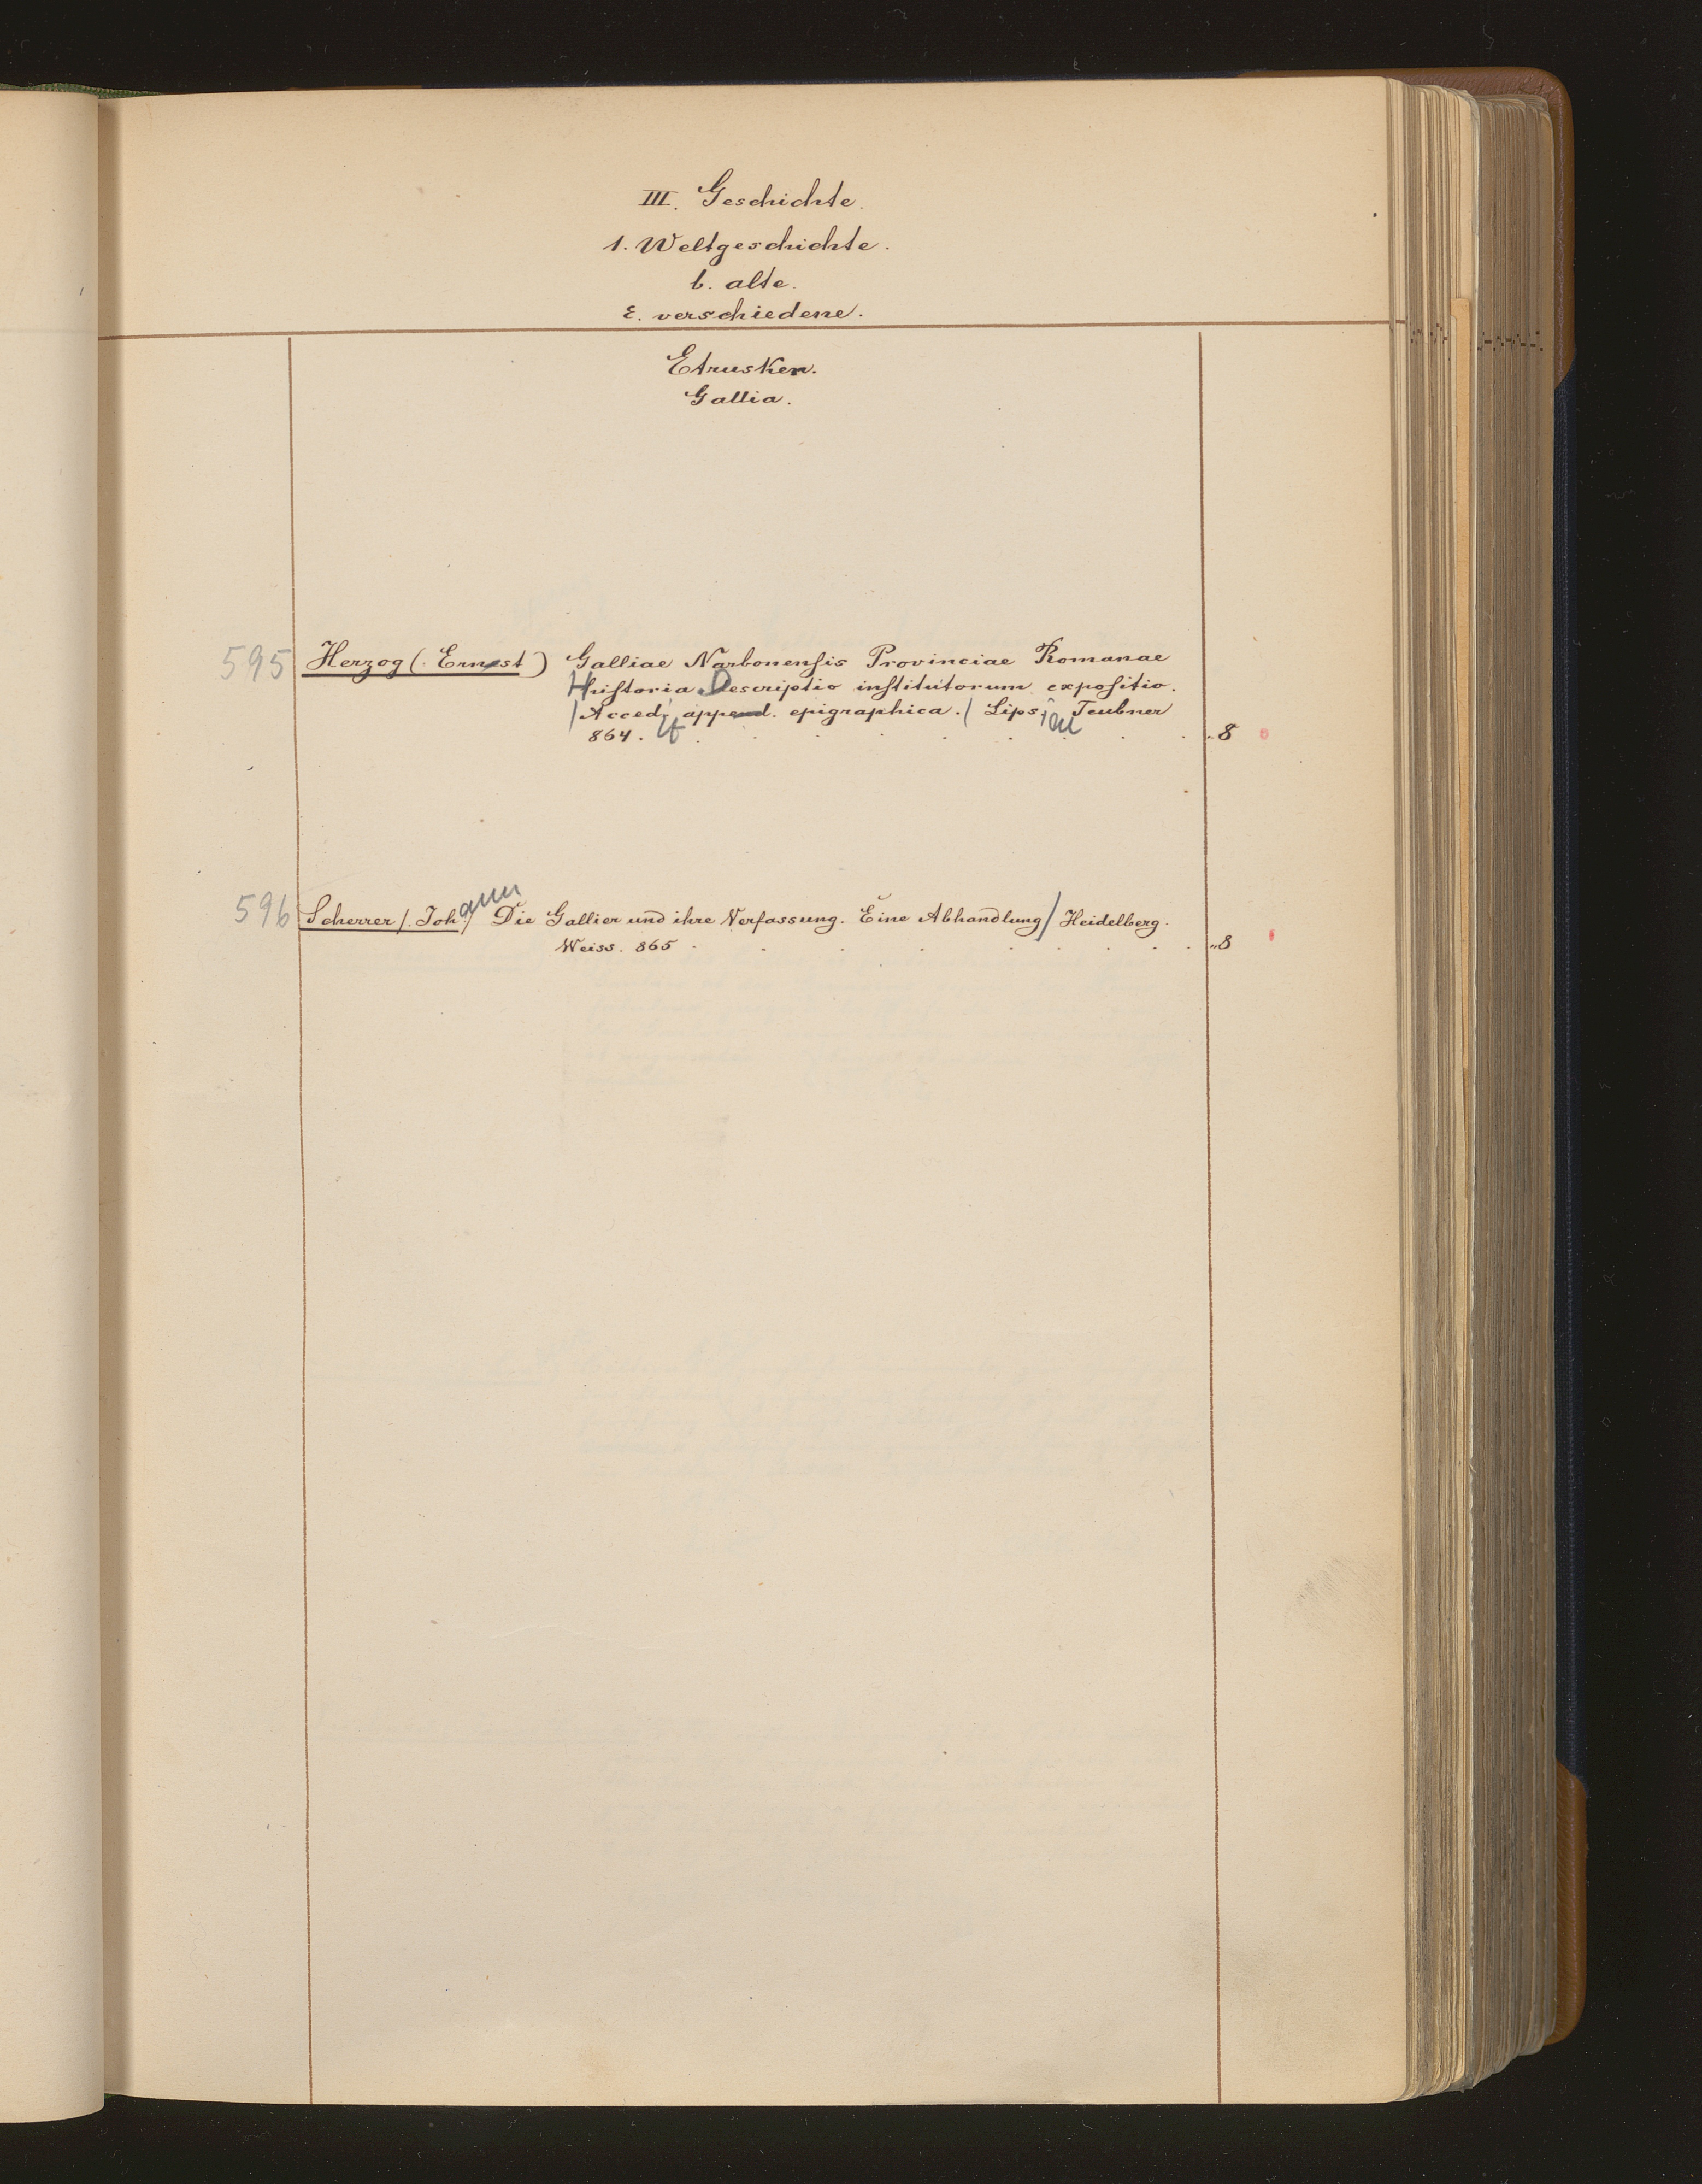 III. Geschichte.
1. Weltgeschichte.
b. alte.
ε. verschiedene.
Etrusker.
Gallia.
595 Herzog (Ernest) Galliae Narbonensis Provinciae Romanae
Historia Descriptio institutorum expositio.
/Acced. append. epigraphica./ Lips. Teubner
864. 8
596 Scherrer /. Johann / Die Gallier und ihre Verfassung. Eine Abhandlung/ Heidelberg.
Weiss. 865 8